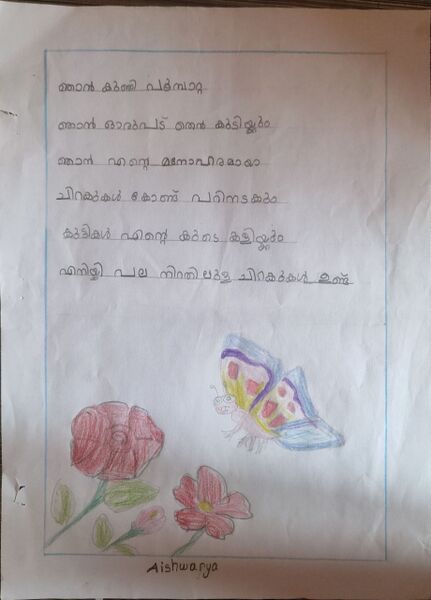 ഞാൻ കുഞ്ഞി പൂമ്പാറ്റ
ഞാൻ ഓരുപട് തെൻ കുടിയ്ക്കും
ഞാൻ എന്റെ മനോഹരമായാ
ചിറകുകൾ കോണ്ട് പറിനടകും
കുട്ടികൾ എന്റെ കുടെ കളിയ്ക്കും
എനിയ്ക്ക് പല നിറതിലുള ചിറകുകൾ ഉണ്ട്
Aishwarya